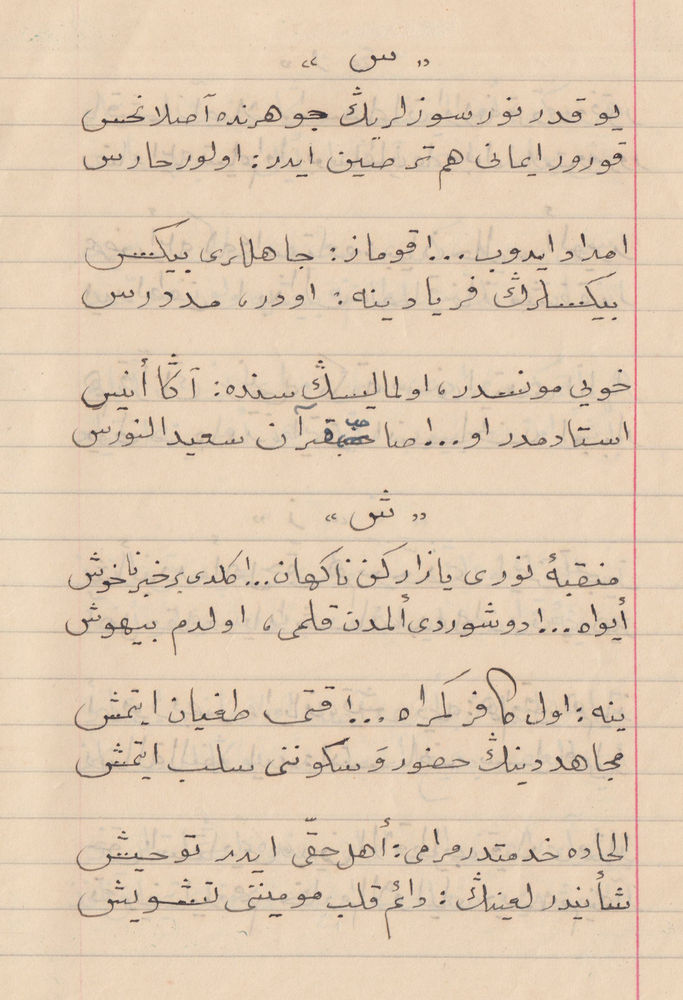 « س »
يوقدر نور سوزلريڭ جوهرنده آصلا نحس
قورور ايمانى هم ترصين ايدر : اولور حارس
امداد ايدوب ...! قوماز : جاهللرى بيكس
بيكسلرڭ فريادينه : اودر، مدرس
خوىى مونسدر، اولماليسڭ سنده : آڭا أنيس
استادمدر او ...! صاحبقرآن سعيد النورس
« ش »
منقبهٔ نورى يازاركن ناكهان ...! كلدى برخبر ناخوش
أيواه ...! دوشوردى ألمدن قلمى، اولدم بيهوش
ينه : اول كافر كمراه ...! قتى طغيان ايتمش
مجاهد دينڭ حضور وَ سكوننى سلب ايتمش
الحاده خدمتدر مرامى : أهل حقّى ايدر توحيش
شأنيدر لعينڭ : دائم قلب مومنى تشويش